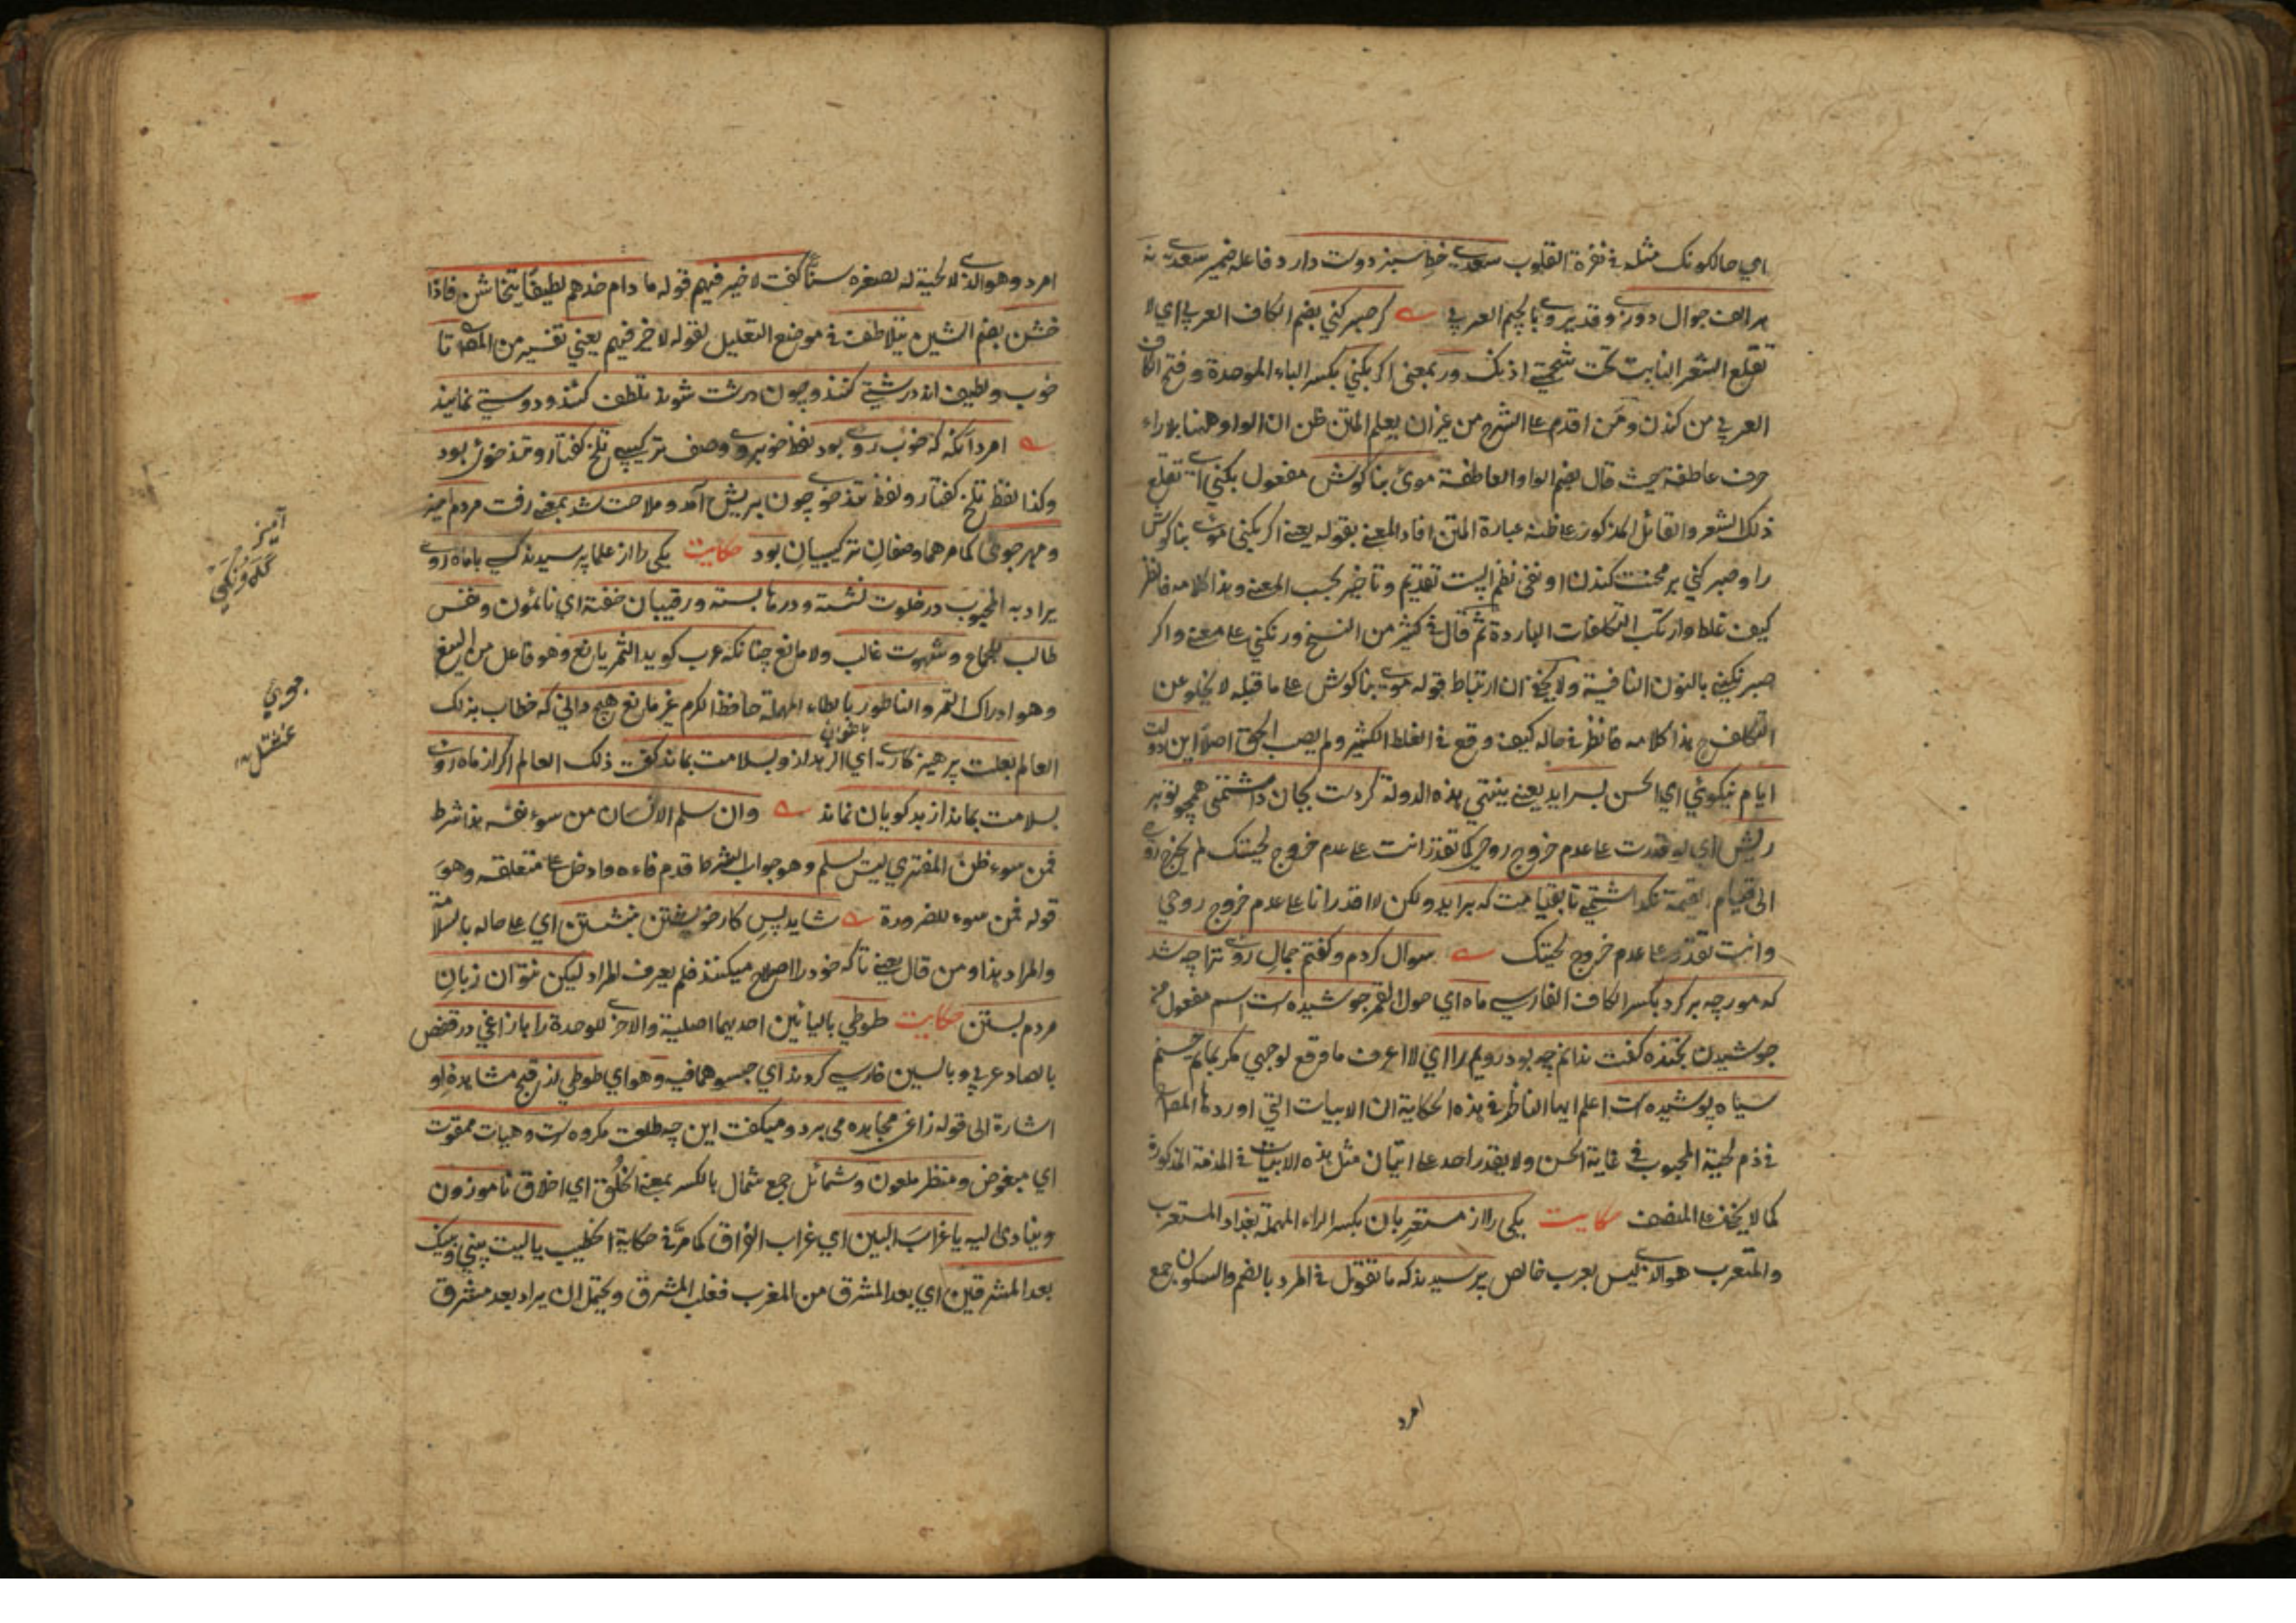 اي حالكونك مثله في نفرة القلوب سعدي خط سبز دوست دارد فاعله ضمير سعدي نه
هر الف جوال دوزي وقديروي بالجيم العربي گر صبر كني بضم الكاف العربي اي لا
تقلع الشعر النابت تحت شحمتي اذنك ور بمعنى اگر بكني بكسر الباء الموحدة وفتح الكاف
العربي من كندن ومن اقدم على الشرح من غير ان يعلم المتن ظن ان الواو ههنا بلا راء
حرف عاطفة حيث قال بضم الواو العاطفة موي بناگوش مفعول بكني اي تقلع
ذلك الشعر والقائل المذكور على ظنه عبارة المتن افاد المعنى بقوله يعني اگر بكني موي بناگوش
را وصبر كني بر محنت كندن او نفى نظم البيت تقديم وتأخير بحسب المعنى وهذا كلامه فانظر
كيف غلط وارتكب التكلفات الباردة ثم قال في كثير من النسخ ور نكني على معنى واگر
صبر نكني بالنون النافية ولا يخفى ان ارتباط قوله موي بناگوش على ما قبله لا يخلو عن
التكلف هذا كلامه فانظر في حاله كيف وقع في الغلط الكثير ولم يصب الحق اصلا اين دولت
ايام نيكوئي اي الحسن بسر ايد يعني ينتهي هذه الدولة گر دست بجان داشتمي همچو تو بر
ريش اي لو قدرت على عدم خروج روحي كما تقدر انت على عدم خروج لحيتك لم يخرج روحي
الى قيام القيمة نگذاشتمي تا بقيامت كه برايد ولكن لا اقدر انا على عدم خروج روحي
وانت تقدر على عدم خروج لحيتك سوال كردم وگفتم جمال روي ترا چه شد
كه مورچه بر گرد بكسر الكاف الفارسي ماه اي حول القمر جوشيده است اسم مفعول من
جوشيدن بخنده گفت ندانم چه بود رويم را اي لا اعرف ما وقع لوجهي مگر بماتم حسنم
سياه پوشيده است اعلم ايها الناظر في هذه الحكاية ان الابيات التي اوردها المص
في ذم لحية المحبوب في غاية الحسن ولا يقدر احد على اتيان مثل هذه الابيات في المذمة المذكورة
كما لا يخفى على المنصف حكايت يكي را از مستعربان بكسر الراء المهملة بغداد المستعرب
والمتعرب هو الذي ليس بعرب خالص پرسيدند كه ما تقول في المرد بالضم والسكون جمع
امرد
امرد وهو الذي لا لحية له لصغره سنا گفت لا خير فيهم قوله ما دام احدهم لطيفا يتخاشن فاذا
خشن بضم الشين يتلاطف في موضع التعليل لقوله لا خير فيهم يعني تفسير من المص تا
خوب ولطيف اند درشتي كنند وچون درشت شوند تلطف كنند ودوستي نمايند
امرد انگه كه خوب روي بود لفظ خوبروي وصف تركيبي تلخ گفتار وتند خوي بود
وكذا لفظ تلخ گفتار ولفظ تند خوي چون بريش آمد وملاحت شد بمعنى رفت مردم اميز
ومهر جوي كما مر هما وصفان تركيبيان بود حكايت يكي را از علما پرسيدند كسي با ماه روي
يراد به المحبوب در خلوت نشسته ودرها بسته ورقيبان خفته اي نائمون ونفس
طالب للجماع وشهوت غالب ولا مانع چنانكه عرب گويد الثمر يانع وهو فاعل من الينع
وهو ادراك الثمر والناطور بالطاء المهملة حافظ الكرم غير مانع هيچ داني كه خطاب بذلك
العالم بعلت پرهيزگاري اي الزهد از وبسلامت بماند گفت ذلك العالم اگر از ماه روي
بسلامت بماند از بدگويان نماند وان سلم الانسان من سوء نفسه هذا شرط
فمن سوء ظن المفتري ليس يسلم وهو جواب الشرط قدم فاءه وادخل على متعلقه وهو
قوله من سوء للضرورة شايد پس كار خويشتن بنشستن اي على حاله بالسلامة
والمراد هذا ومن قال يعني تا كه خود را اصلاح ميكند فلم يعرف المراد ليكن نتوان زبان
مردم بستن حكايت طوطي باليائين احديهما اصلية والاخرى للوحدة را با زاغي در قفص
بالصاد عربي وبالسين فارسي كردند اي حبسوهما فيه وهو اي طوطي از قبح مشاهده او
اشارة الى قوله زاغي مجاهده مي برد وميگفت اين چه طلعت مكروه است وهيات ممقوت
اي مبغوض ومنظر ملعون وشمائل جمع شمال بالكسر بمعنى الخلق اي اخلاق ناموزون
وينادى اليه يا غراب البين اي غراب الفراق كما مر في حكاية الخطيب يا ليت بيني وبينك
بعد المشرقين اي بعد المشرق من المغرب فغلب المشرق ويحتمل ان يراد بعد مشرق
آميز
جوي